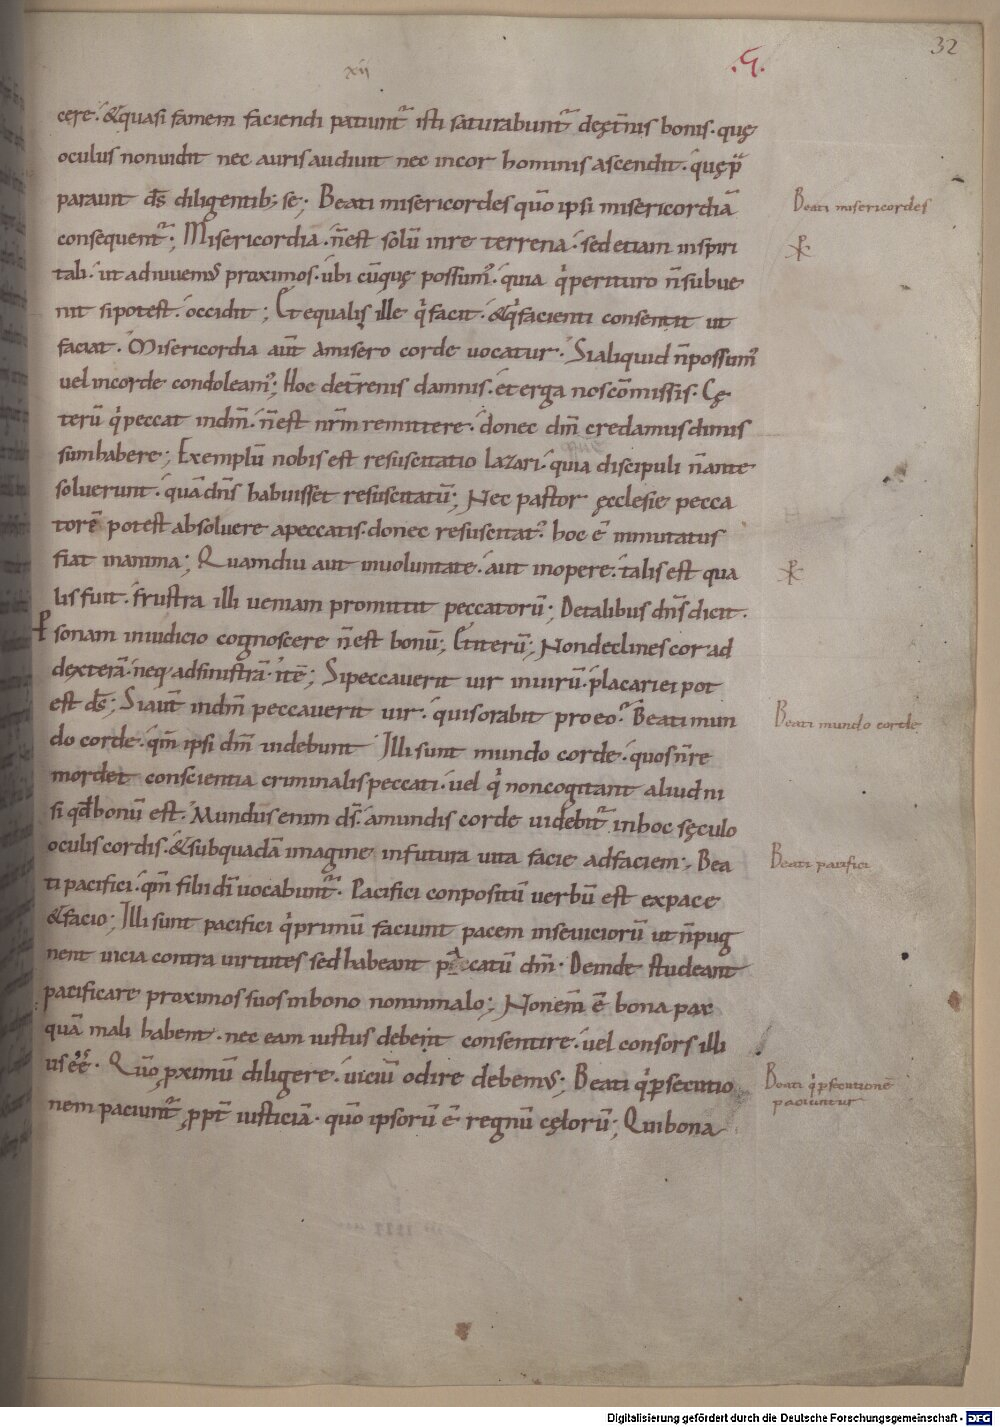 32
xii
.G.
cere. &quasi famem faciendi patiunt᷑ isti saturabunt᷑ dęt̄nis bonis. quę
oculus nonuidit nec auris audiuit nec incor hominis ascendit. quęp̄
parauit d̄s diligentib; se; Beati misericordes qūo ipsi misericordiā
Beati misericordes
consequent᷑; Misericordia n̄est solū inre terrena. sedetiam inspiri
tali. ut adiuuem᷒ proximos. ubi cūquę possum᷒. quia qͥperituro n̄subue
nit sipotest. occidit; Et equalis ille qͥfacit. &qͥfacienti consentit ut
faciat. Misericordia aūt amisero corde uocatur. Sialiquid n̄possum᷒
uel incorde condoleam᷒; Hoc det̄renis damnis. et erga nos cōmissis. Cę
terū qͥpeccat indm̄. n̄est nr̄m remittere. donec dm̄ credamus dimis
sum habere; Exemplū nobis est resuscitatio lazari. quia discipuli n̄ante
soluerunt. quā dn̄s habuisset resuscitatū; Nec pastor ęcclesie pecca
torē potest absoluere apeccatis. donec resuscitat᷒. hoc ē inmutatus
fiat inanima; Quamdiu aut inuoluntate. aut inopere. talis est qua
lis fuit. frustra illi ueniam promittit peccatorū; Detalibus dn̄s dicit.
ꝑsonam iniudicio cognoscere n̄est bonū; Et iterū; Nondeclines cor ad
dexterā. neq; adsinistrā. itē; Sipeccauerit uir inuirū. placari ei pot
est d̄s; Si aūt indm̄ peccauerit uir. quis orabit pro eo. Beati mun
do corde. qm̄ ipsi dm̄ uidebunt Illi sunt mundo corde. quos n̄re
Beati mundo corde
mordet conscientia criminalis peccati. uel qͥ noncogitant aliud ni
si qd̄ bonū est. Mundus enim d̄s. amundis corde uidebit᷑ inhoc sęculo
oculis cordis. &subquadā imagine infutura uita facie adfaciem; Bea
Beati pacifici
ti pacifici. qm̄ filii dī uocabunt᷑. Pacifici conpositū uerbū est expace
&facio; Illi sunt pacifici qͥprimū faciunt pacem inse uiciorū ut n̄pug
nent uicia contra uirtutes sed habeant catū dm̄. Deinde studeant
pacificare proximos suos inbono non inmalo; Non enī ē bona pax
quā mali habent. nec eam iustus debent consentire. uel consors illi
us eē. Qūo ꝓximū diligere. uiciū odire debem᷒; Beati qͥꝑsecutio
Beati qͥꝑsecutionē
paciuntur
nem paciunt᷑ ꝓpt̄ iusticiā. qūo ipsorū ē regnū cęlorū; Qui bona
Digitalisierung gefördert durch die Deutsche Forschungsgemeinschaft - DFG